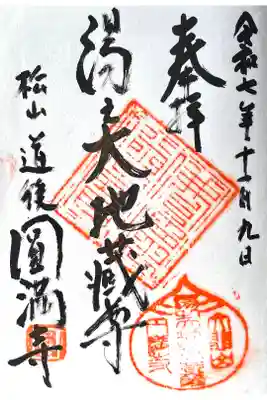 令和七年十一月九日
奉拝
湯之大地蔵尊
松山 道後
圓満寺